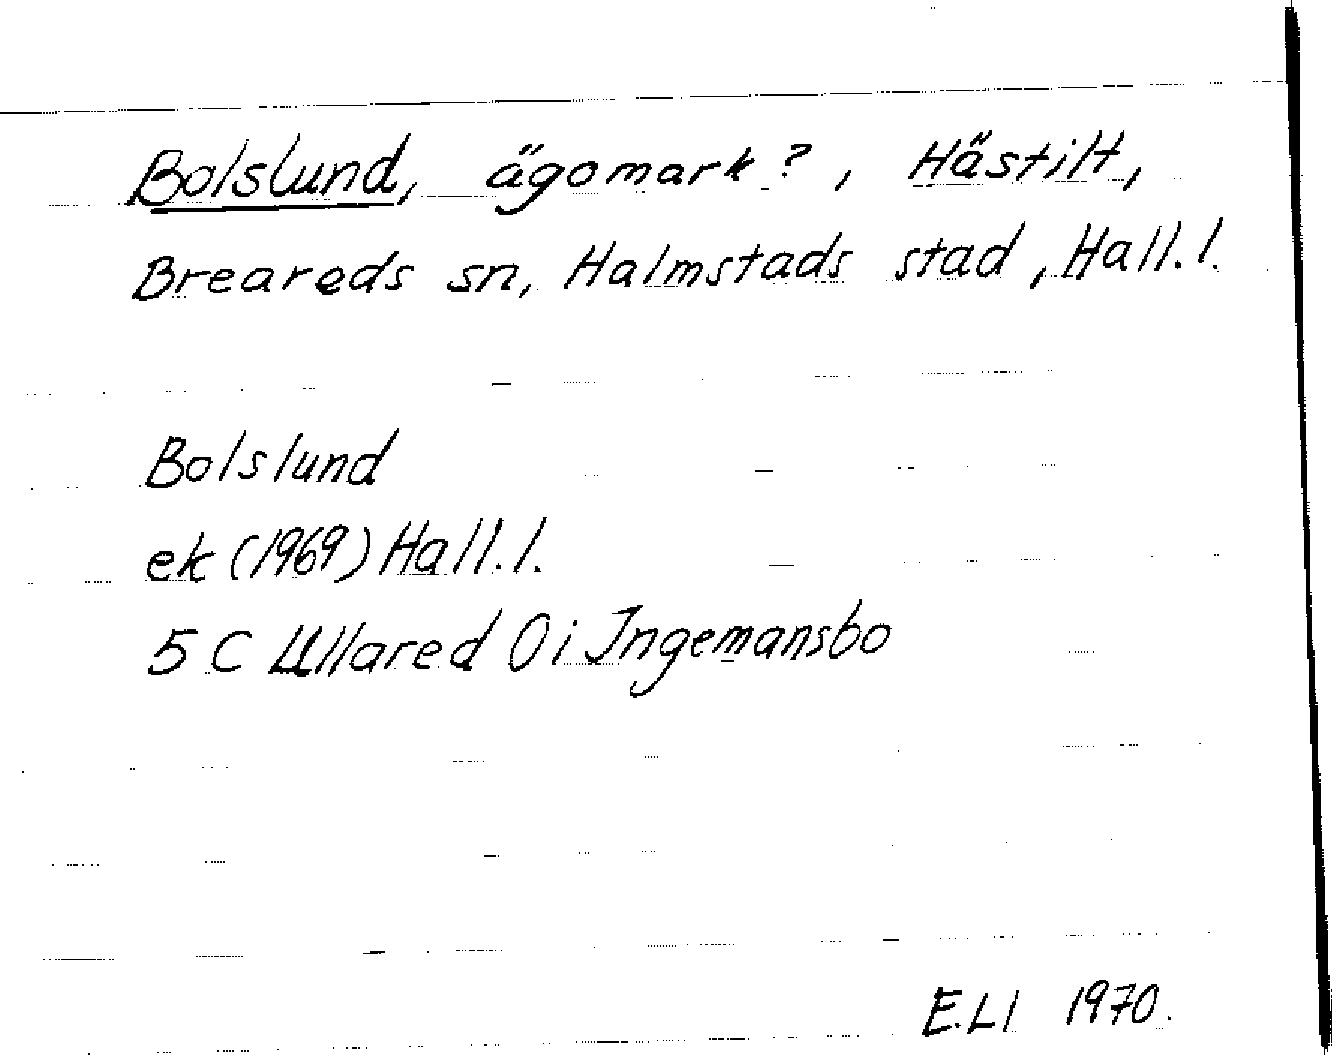 Bolslund, ägomark?, Hästilt,
Breareds sn, Halmstads stad, Hall.l.
Bolslund
ek (1969) Hall.l.
5 C Ullared 0 i Ingemansbo
E.Ll 1970.